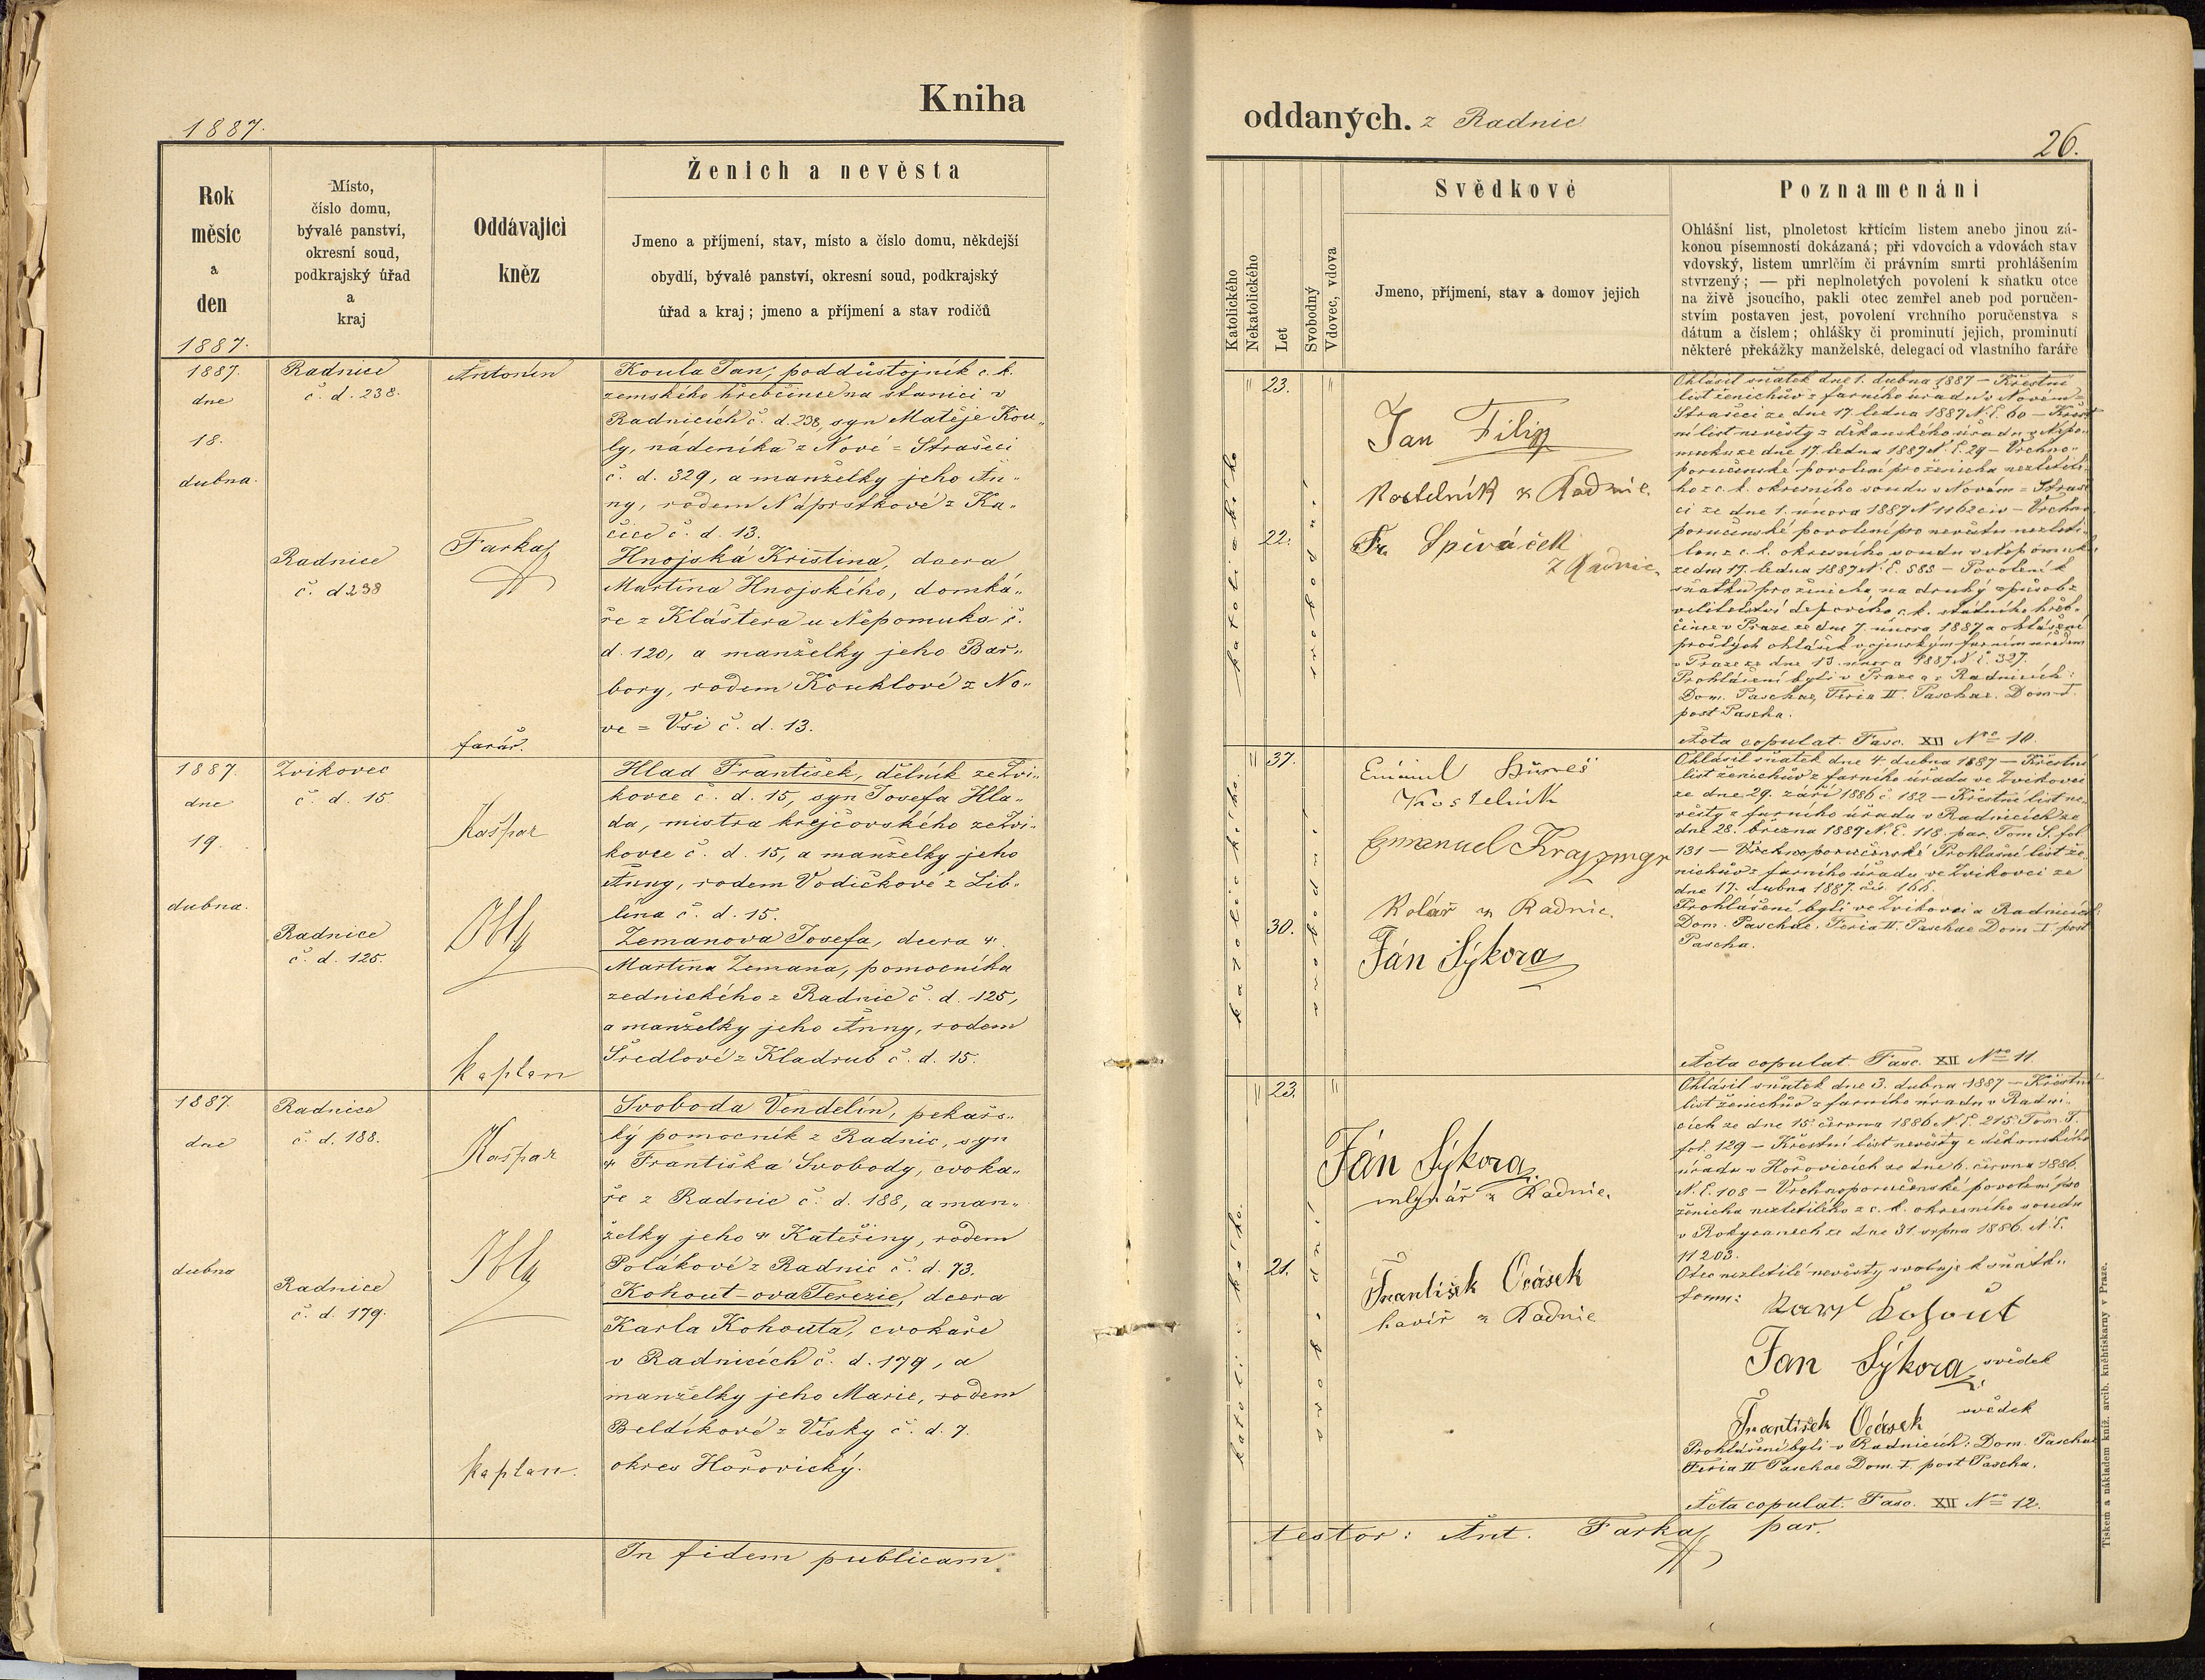 Kniha
1887.
Rok
měsíc
a
den
1887.
Místo,
číslo domu,
bývalé panství,
okresní soud,
podkrajský úřad
a
kraj
Oddávající
kněz
Ženich a nevěsta
Jmeno a příjmení, stav, místo a číslo domu, někdejší
obydlí, bývalé panství, okresní soud, podkrajský
úřad a kraj; jmeno a příjmení a stav rodičů
1887.
dne
18.
dubna.
Radnice
č. d. 238.
Radnice
č. d 238
Antonín
Farka
farář.
Koula Jan, poddůstojník c. k.
zemského hřebčince na stanici v
Radnicích č. d. 238, syn Matěje Kou„
ly, nádeníka z Nové = Strašecí
č. d. 329, a manželky jeho An„
ny, rodem Náprstkové z Ka„
čice č. d. 13.
Hnojská Kristina, dcera
Martina Hnojského, domká„
ře z Kláštera u Nepomuka č.
d. 120, a manželky jeho Bar„
bory, rodem Kouklové z No„
ve = Vsi č. d. 13.
1887.
dne
19.
dubna.
Zvikovec
č. d. 15.
Radnice
č. d. 125.
Kašpar
kaplan
Hlad František, dělník ze Zvi„
kovce č. d. 15, syn Josefa Hla„
da, mistra krejčovského ze Zvi„
kovce č. d. 15, a manželky jeho
Anny, rodem Vodičkové z Lib„
lína č. d. 15.
Zemanova Josefa, dcera
Martina Zemana, pomocníka
zednického z Radnic č. d. 125,
a manželky jeho Anny, rodem
Šredlové z Kladrub č. d. 15.
1887.
dne
dubna
Radnice
č. d. 188.
Radnice
č. d. 179.
Kašpar
kaplan.
Svoboda Vendelín, pekařs„
ký pomocník z Radnic, syn
Františka Svobody, cvoka„
ře z Radnic č. d. 188, a man„
želky jeho Kateřiny, rodem
Polákové z Radnic č. d. 73.
Kohout-ova Terezie, dcera
Karla Kohouta, cvokaře
v Radnicích č. d. 179, a
manželky jeho Marie, rodem
Beldíkové z Vísky č. d. 7.
okres Hořovický.
In fidem publicam
oddaných. z Radnic
26.
Katolického
Nekatolického
Let
Svobodný
Vdovec, vdova
Svědkové
Jmeno, příjmení, stav a domov jejich
Poznamenání
Ohlášní list, plnoletost křtícím listem anebo jinou zá-
konou písemností dokázaná; při vdovcích a vdovách stav
vdovský, listem umrlčím či právním smrti prohlášením
stvrzený; — při neplnoletých povolení k sňatku otce
na živě jsoucího, pakli otec zemřel aneb pod poručen-
stvím postaven jest, povolení vrchního poručenstva s
dátum a číslem; ohlášky či prominutí jejich, prominutí
některé překážky manželské, delegací od vlastního faráře
23.
22.
katolického
svobodní
Jan Filip
Kostelník z Radnic.
Fr. Spěváček
z Radnic.
Ohlásil sňatek dne 1. dubna 1887 — Křestní
list ženichův z farního úřadu v Novém=
Strašecí ze dne 17. ledna 1887 N. E. 60 — Křest
ní list nevěsty z děkanského úřadu v Nepo„
muku ze dne 17. ledna 1887 N. E. 29 — Vrchno„
poručenské povolení pro ženicha nezletilé„
ho z c. k. okresního soudu v Novém = Straše
cí ze dne 1. února 1887 N 1162 civ — Vrchno
poručenské povolení pro nevěstu nezleti„
lou z c. k. okresního soudu v Nepomuku
ze dne 17. ledna 1887 N. E. 585 — Povolení k
sňatku pro ženicha na druhý způsob z
velitelství depového c. k. státního hřeb„
čince v Praze ze dne 7. února 1887 a ohlášení
prošlých ohlášek vojenským farním úřadem
v Praze ze dne 13. února 1887 N. E. 327.
Prohlášeni byli v Praze a v Radnicích:
Dom. Paschae, Feria II. Paschae. Dom I.
post Pascha.
Acta copulat. Fasc. XII Nro 10.
37.
30.
katolického.
svobodní
Kostelník
Emanuel
Kolář z Radnic.
Ján Sýkora
Ohlásil sňatek dne 4 dubna 1887 — Křestní
list ženichův z farního úřadu ve Zvikovci
ze dne 29. září 1886 č 182 — Křestní list ne„
věsty z farního úřadu v Radnicích ze
dne 28. března 1887 N. E. 118. par. Tom S. fol.
131 — Prohlašní list že„
nichův z farního úřadu ve Zvikovci ze
dne 17. dubna 1887. čís. 166.
Prohlášeni byli ve Zvikovci a Radnicích:
Dom. Paschae. Feria II. Paschae Dom I post
Pascha.
Acta copulat. Fasc. XII Nro 11.
23.
21.
katolického.
svobodní
Ján Sýkora
mlynář z Radnic.
František Ocásek
havíř z Radnic
Ohlásil sňatek dne 3. dubna 1887 — Křestní
list ženichův z farního úřadu v Radni„
cích ze dne 15. června 1886 N. E. 215. Tom. T.
fol. 129 — Křestní list nevěsty z děkanského
úřadu v Hořovicích ze dne 6. června 1886.
N. E. 108 — Vrchnoporučenské povolení pro
ženicha nezletilého z c. k. okresního soudu
v Rokycanech ze dne 31. srpna 1886. N. E.
11203.
Otec nezletilé nevěsty svoluje k sňatk„
Karl Kohout
Jan Sýkora svědek
František Ocásek svědek
Prohlášeni byli v Radnicích: Dom. Paschae
Feria II Paschae Dom. I. post Pascha.
Acta copulat. Fasc. XII Nro 12.
testor: Ant. Farka par.
Tiskem a nákladem kníž. arcib. knihtiskarny v Praze.